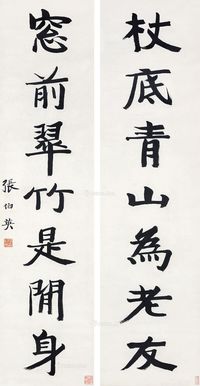 杖底青山為老友
窓前翠竹是閒身
張伯英